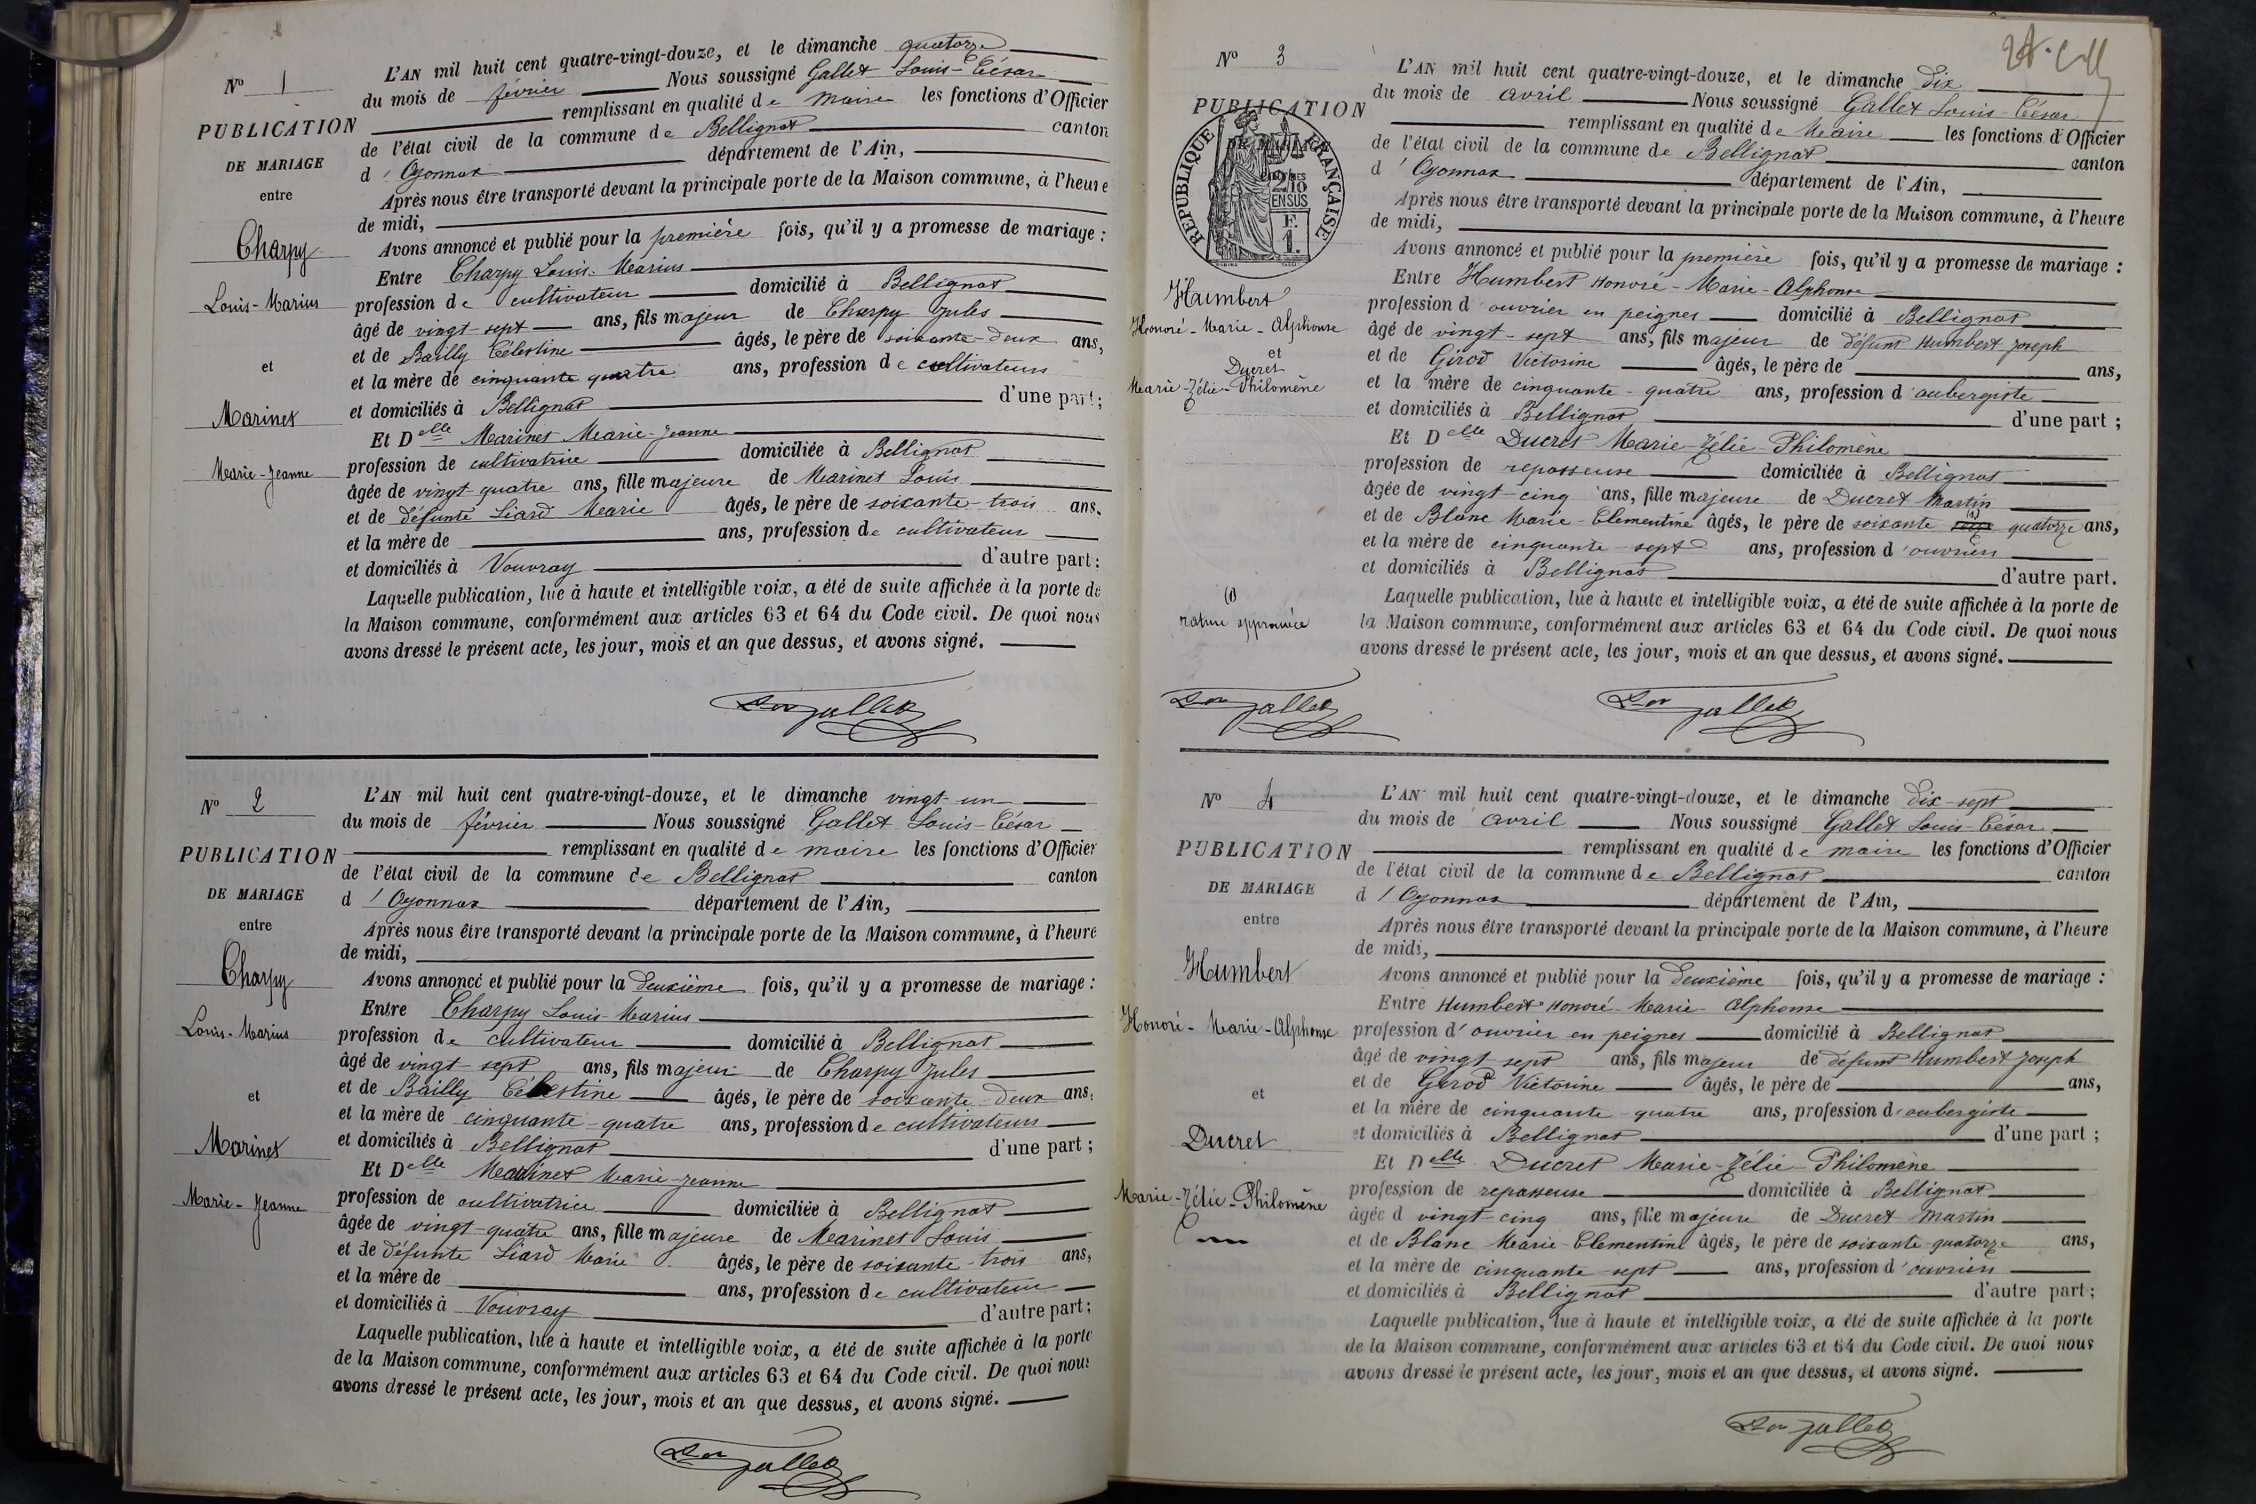 N° 1
PUBLICATION
DE MARIAGE
entre
Charpy
Louis-Marius
et
Marinet
Marie-Jeanne
L'AN mil huit cent quatre-vingt-douze, et le dimanche quatorze
du mois de février Nous soussigné Gallet Louis-César
remplissant en qualité de maire les fonctions d'Officier
de l'état civil de la commune de Bellignat canton
d'Oyonnax département de l'Ain,
Après nous être transporté devant la principale porte de la Maison commune, à l'heure
de midi,
Avons annoncé et publié pour la première fois, qu'il y a promesse de mariage :
Entre Charpy Louis-Marius
profession de cultivateur domicilié à Bellignat
âgé de vingt-sept ans, fils majeur de Charpy Jules
et de Bailly Célestine âgés, le père de soixante-deux ans,
et la mère de cinquante quatre ans, profession de cultivateurs
et domiciliés à Bellignat d'une part ;
Et Delle Marinet Marie-Jeanne
profession de cultivatrice domiciliée à Bellignat
âgée de vingt-quatre ans, fille majeure de Marinet Louis
et de défunte Liard Marie âgés, le père de soixante-trois ans.
et la mère de ans, profession de cultivateur
et domiciliés à Vouvray d'autre part :
Laquelle publication, lue à haute et intelligible voix, a été de suite affichée à la porte de
la Maison commune, conformément aux articles 63 et 64 du Code civil. De quoi nous
avons dressé le présent acte, les jour, mois et an que dessus, et avons signé.
Gallet
N° 2
PUBLICATION
DE MARIAGE
entre
Charpy
Louis-Marius
et
Marinet
Marie-Jeanne
L'AN mil huit cent quatre-vingt-douze, et le dimanche vingt-un
du mois de février Nous soussigné Gallet Louis-César
remplissant en qualité de maire les fonctions d'Officier
de l'état civil de la commune de Bellignat canton
d'Oyonnax département de l'Ain,
Après nous être transporté devant la principale porte de la Maison commune, à l'heure
de midi,
Avons annoncé et publié pour la deuxième fois, qu'il y a promesse de mariage :
Entre Charpy Louis-Marius
profession de cultivateur domicilié à Bellignat
âgé de vingt-sept ans, fils majeur de Charpy Jules
et de Bailly Célestine âgés, le père de soixante-deux ans,
et la mère de cinquante-quatre ans, profession de cultivateurs
et domiciliés à Bellignat d'une part ;
Et Delle Marinet Marie-Jeanne
profession de cultivatrice domiciliée à Bellignat
âgée de vingt-quatre ans, fille majeure de Marinet Louis
et de défunte Liard Marie âgés, le père de soixante-trois ans,
et la mère de ans, profession de cultivateur
et domiciliés à Vouvray d'autre part ;
Laquelle publication, lue à haute et intelligible voix, a été de suite affichée à la porte
de la Maison commune, conformément aux articles 63 et 64 du Code civil. De quoi nous
avons dressé le présent acte, les jour, mois et an que dessus, et avons signé.
Gallet
N° 3
PUBLICATION
DE MARIAGE
RÉPUBLIQUE FRANÇAISE
2/10
EN SUS
F.
1.
Humbert
Honoré-Marie-Alphonse
et
Ducret
Marie-Zélie-Philomène
(1)
rature approuvée
Gallet
L'AN mil huit cent quatre-vingt-douze, et le dimanche dix
du mois de avril Nous soussigné Gallet Louis-César
remplissant en qualité de Maire les fonctions d'Officier
de l'état civil de la commune de Bellignat canton
d'Oyonnax département de l'Ain,
Après nous être transporté devant la principale porte de la Maison commune, à l'heure
de midi,
Avons annoncé et publié pour la première fois, qu'il y a promesse de mariage :
Entre Humbert Honoré-Marie-Alphonse
profession d'ouvrier en peignes domicilié à Bellignat
âgé de vingt-sept ans, fils majeur de défunt Humbert Joseph
et de Girod Victorine âgés, le père de ans,
et la mère de cinquante-quatre ans, profession d'aubergiste
et domiciliés à Bellignat d'une part ;
Et Delle Ducret Marie-Zélie-Philomène
profession de repasseuse domiciliée à Bellignat
âgée de vingt-cinq ans, fille majeure de Ducret Martin
et de Blanc Marie-Clementine âgés, le père de soixante (1) quatorze ans,
et la mère de cinquante-sept ans, profession d'ouvriers
et domiciliés à Bellignat d'autre part.
Laquelle publication, lue à haute et intelligible voix, a été de suite affichée à la porte de
la Maison commune, conformément aux articles 63 et 64 du Code civil. De quoi nous
avons dressé le présent acte, les jour, mois et an que dessus, et avons signé.
Gallet
N° 4
PUBLICATION
DE MARIAGE
entre
Humbert
Honoré-Marie-Alphonse
et
Ducret
Marie-Zélie-Philomène
L'AN mil huit cent quatre-vingt-douze, et le dimanche dix-sept
du mois de avril Nous soussigné Gallet Louis-César
remplissant en qualité de maire les fonctions d'Officier
de l'état civil de la commune de Bellignat canton
d'Oyonnax département de l'Ain,
Après nous être transporté devant la principale porte de la Maison commune, à l'heure
de midi,
Avons annoncé et publié pour la deuxième fois, qu'il y a promesse de mariage :
Entre Humbert Honoré-Marie-Alphonse
profession d'ouvrier en peignes domicilié à Bellignat
âgé de vingt sept ans, fils majeur de défunt Humbert Joseph
et de Girod Victorine âgés, le père de ans,
et la mère de cinquante-quatre ans, profession d'aubergiste
et domiciliés à Bellignat d'une part ;
Et Delle Ducret Marie-Zélie-Philomène
profession de repasseuse domiciliée à Bellignat
âgée d vingt-cinq ans, fille majeure de Ducret Martin
et de Blanc Marie-Clementine âgés, le père de soixante-quatorze ans,
et la mère de cinquante-sept ans, profession d'ouvriers
et domiciliés à Bellignat d'autre part ;
Laquelle publication, lue à haute et intelligible voix, a été de suite affichée à la porte
de la Maison commune, conformément aux articles 63 et 64 du Code civil. De quoi nous
avons dressé le présent acte, les jour, mois et an que dessus, et avons signé.
Gallet